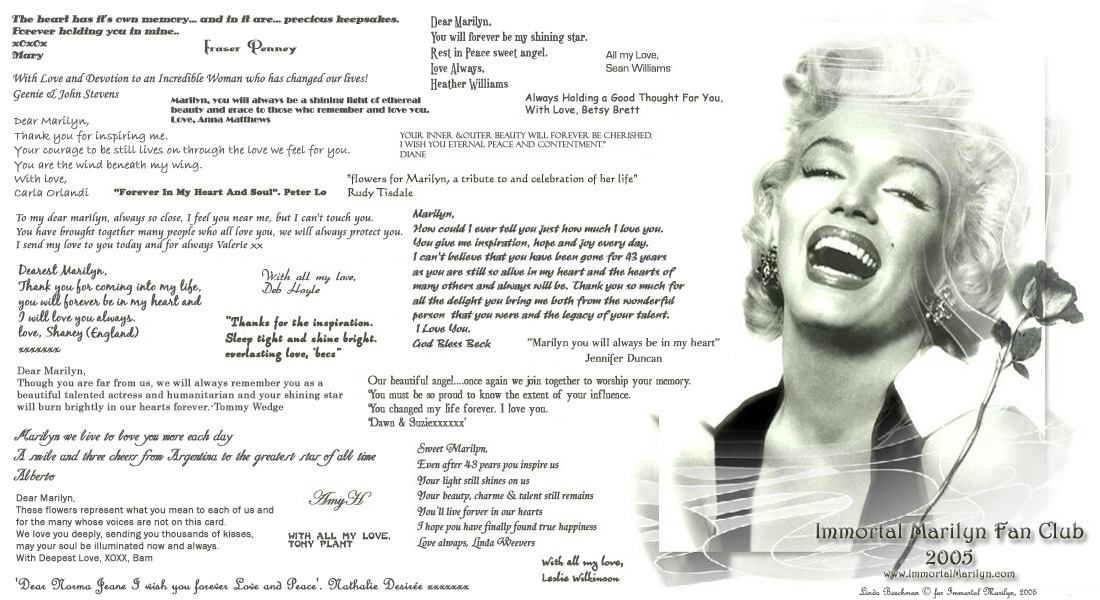 The heart has it's own memory... and in it are... precious keepsakes.
Forever holding you in mine..
xOxOx
Mary
Fraser Penney
Dear Marilyn,
You will forever be my shining star.
Rest in Peace sweet angel.
Love Always,
Heather Williams
All my Love,
Sean Williams
With Love and Devotion to an Incredible Woman who has changed our lives!
Geenie & John Stevens
Marilyn, you will always be a shining light of ethereal
beauty and grace to those who remember and love you.
Love, Anna Matthews
Always Holding a Good Thought For You,
With Love, Betsy Brett
Dear Marilyn,
Thank you for inspiring me.
Your courage to be still lives on through the love we feel for you.
You are the wind beneath my wing.
With love,
Carla Orlandi
YOUR INNER &OUTER BEAUTY WILL FOREVER BE CHERISHED.
I WISH YOU ETERNAL PEACE AND CONTENTMENT."
DIANE
"Forever In My Heart And Soul". Peter Lo
"flowers for Marilyn, a tribute to and celebration of her life"
Rudy Tisdale
To my dear marilyn, always so close, I feel you near me, but I can't touch you.
You have brought together many people who all love you, we will always protect you.
I send my love to you today and for always Valerie xx
Marilyn,
How could I ever tell you just how much I love you.
You give me inspiration, hope and joy every day.
I can't believe that you have been gone for 43 years
as you are still so alive in my heart and the hearts of
many others and always will be. Thank you so much for
all the delight you bring me both from the wonderful
person that you were and the legacy of your talent.
I Love You.
God Bless Beck
Dearest Marilyn,
Thank you for coming into my life,
you will forever be in my heart and
I will love you always.
love, Shaney (England)
xxxxxxx
With all my love,
Deb Hoyle
"Thanks for the inspiration.
Sleep tight and shine bright.
everlasting love, 'becs"
"Marilyn you will always be in my heart"
Jennifer Duncan
Dear Marilyn,
Though you are far from us, we will always remember you as a
beautiful talented actress and humanitarian and your shining star
will burn brightly in our hearts forever.-Tommy Wedge
Our beautiful angel....once again we join together to worship your memory.
You must be so proud to know the extent of your influence.
You changed my life forever. I love you.
'Dawn & Suziexxxxxx'
Marilyn we live to love you more each day
A smile and three cheers from Argentina to the greatest star of all time
Alberto
Sweet Marilpn,
Even after 43 years you inspire us
Your light still shines on us
Your beauty, charme & talent still remains
You'll live forver in our hearts
I hope you have finally found true happiness
Love always, Linda Weevers
Dear Marilyn,
These flowers represent what you mean to each of us and
for the many whose voices are not on this card.
We love you deeply, sending you thousands of kisses,
may your soul be illuminated now and always.
With Deepest Love, XOXX, Bam
AmyH
WITH ALL MY LOVE,
TONY PLANT
With all my love,
Leslie Wilkinson
'Dear Norma Jeane I wish you forever Love and Peace'. Nathalie Desirée xxxxxxx
Immortal Marilyn Fan Club
2005
www.ImmortalMarilyn.com
Linda Boechman © for Immortal Marilyn, 2005